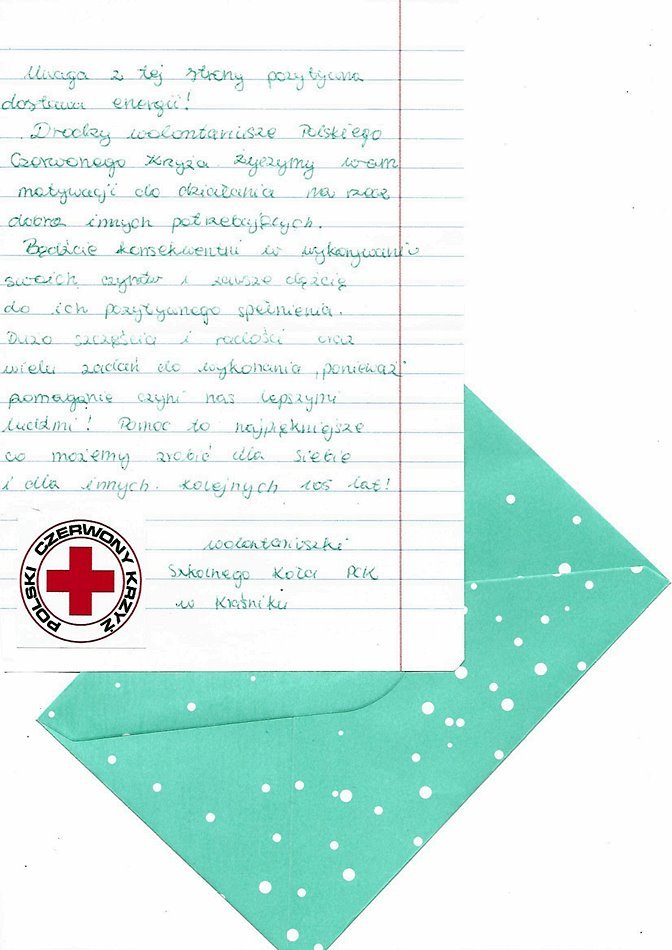 Uwaga z tej strony pozytywna
dostawa energii!
Drodzy wolontariusze Polskiego
Czerwonego Krzyża życzymy wam
motywacji do działania na rzecz
dobra innych potrzebujących.
Bądźcie konsekwentni w wykonywaniu
swoich czynów i zawsze dążcie
do ich pozytywnego spełnienia.
Dużo szczęścia i radości oraz
wielu zadań do wykonania, ponieważ
pomaganie czyni nas lepszymi
ludźmi! Pomoc to najpiękniejsze
co możemy zrobić dla siebie
i dla innych. Kolejnych 105 lat!
wolontariuszki
Szkolnego Koła PCK
w Kraśniku
POLSKI CZERWONY KRZYŻ